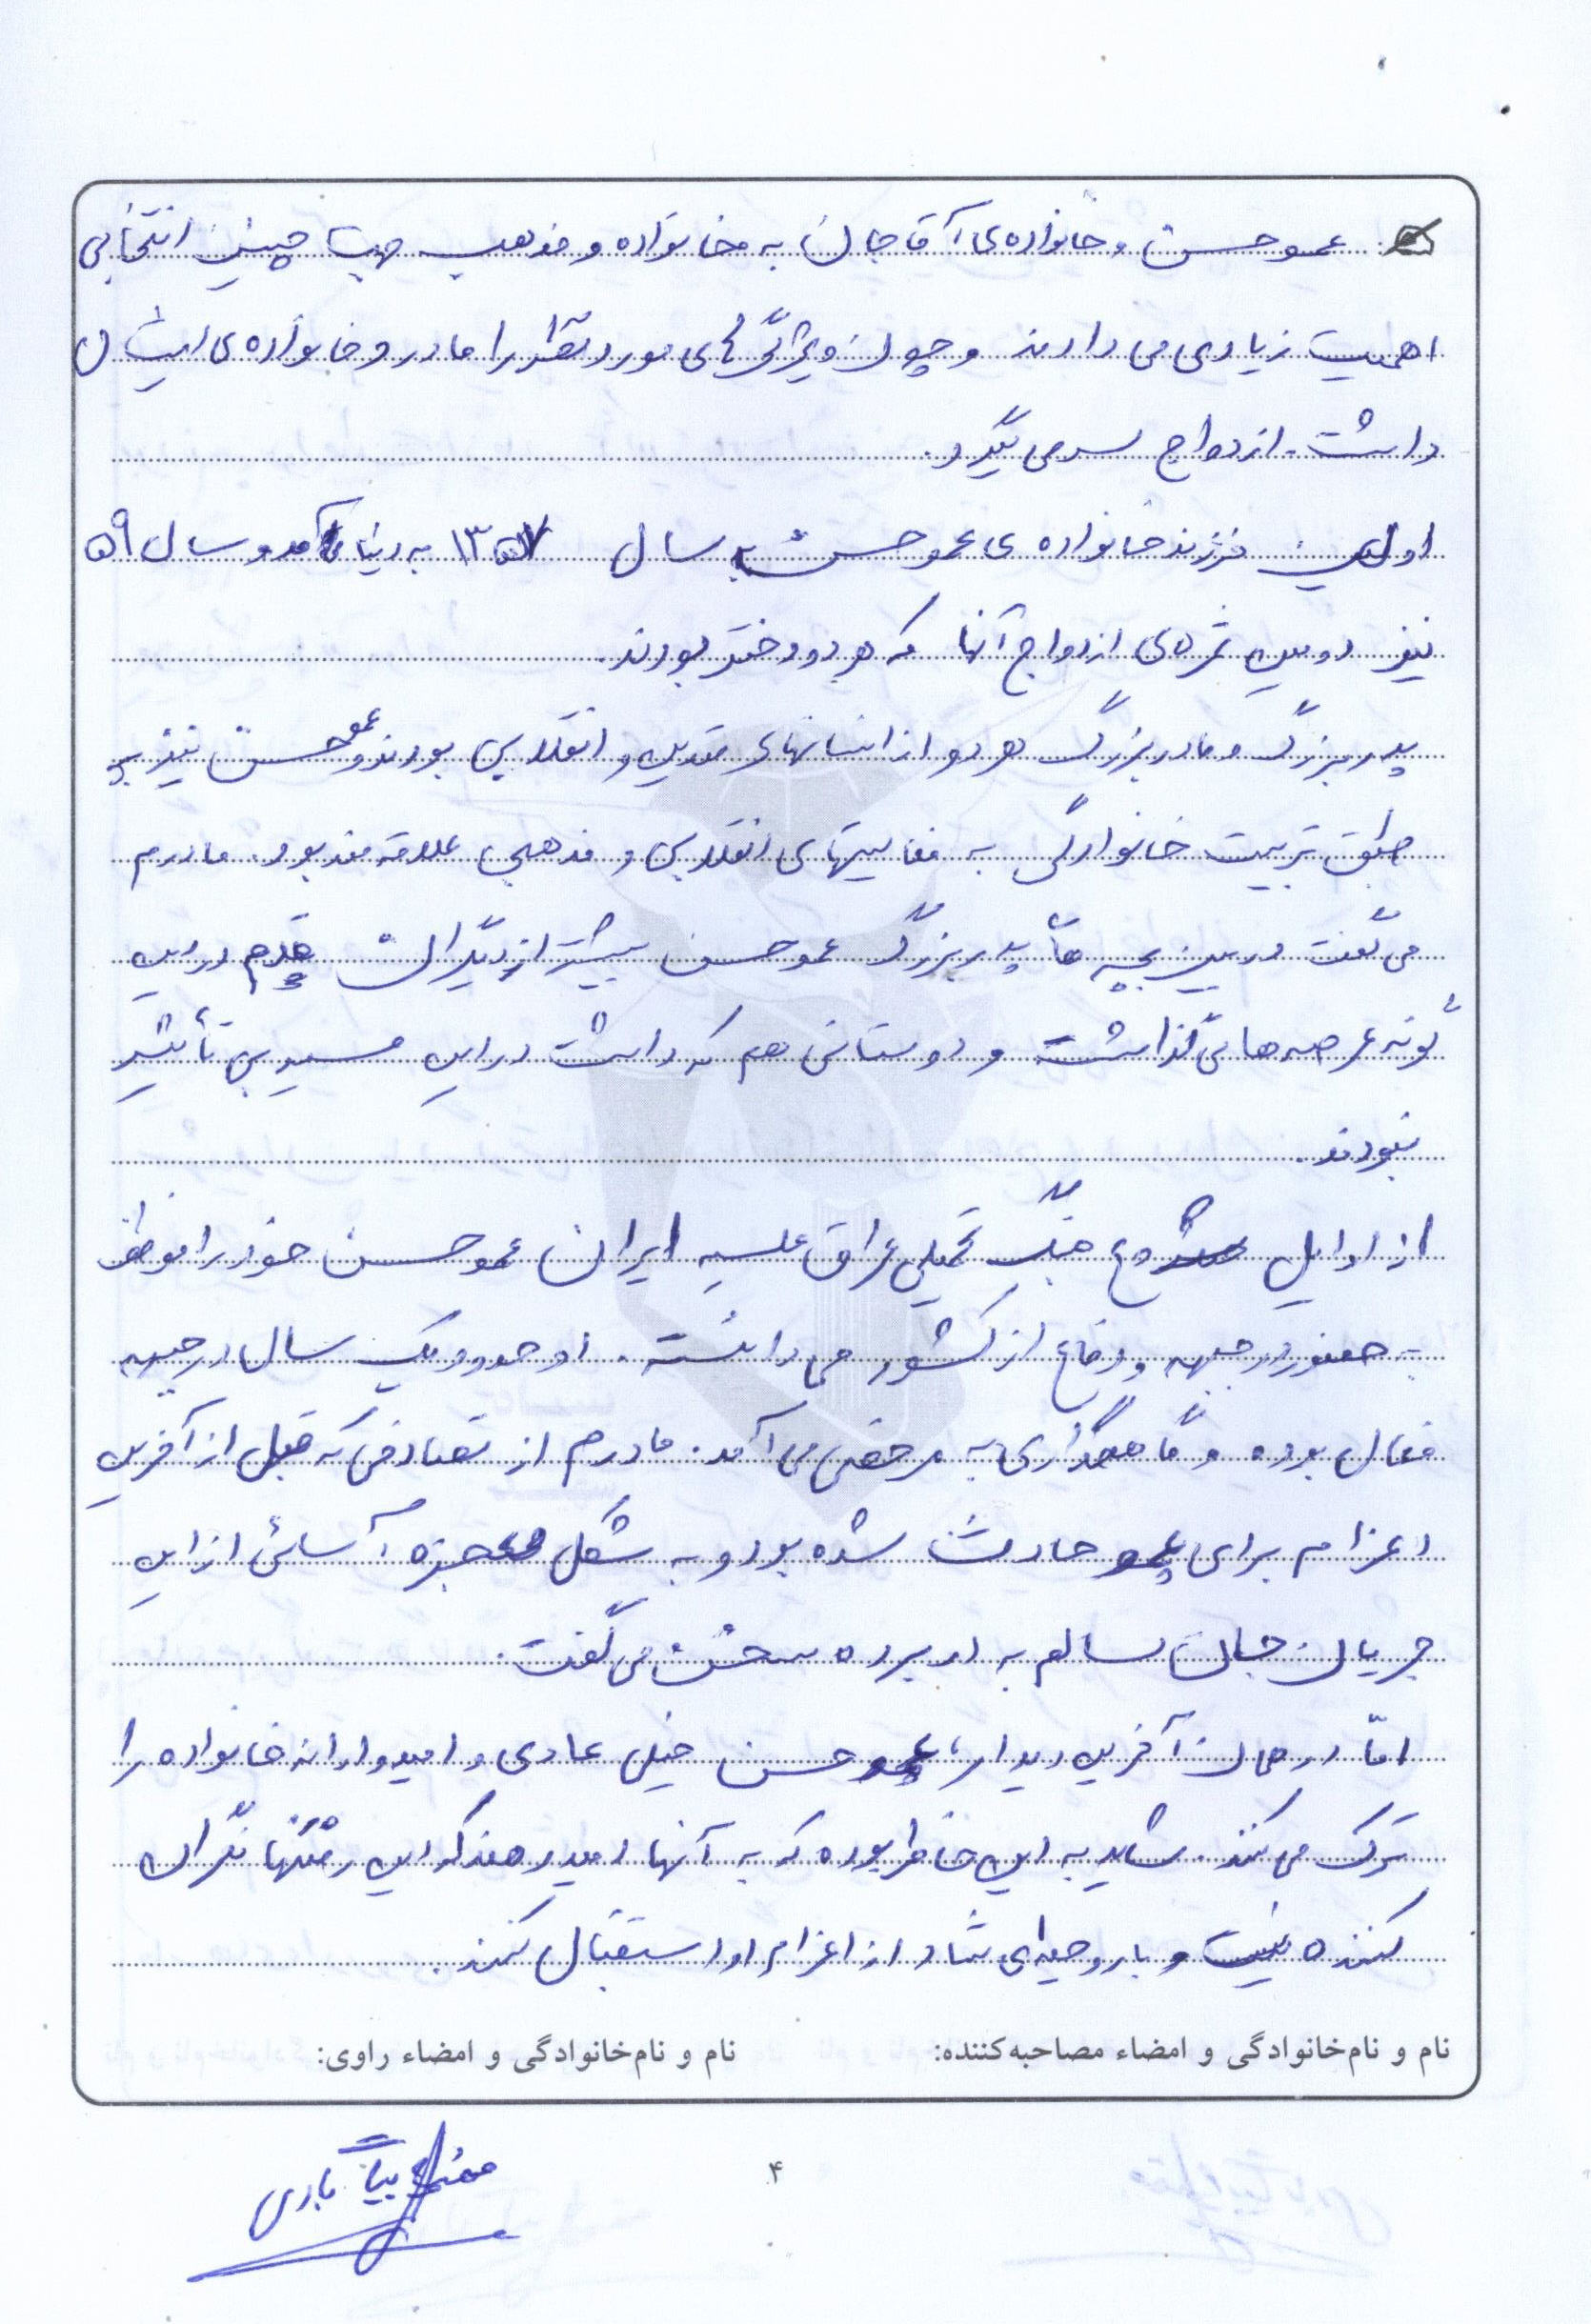 عمو حسن و خانواده‌ی آقا جان به خانواده و مذهب جهت چنین انتخابی
اهمیت زیادی می دادند و چون ویژگی های مورد نظر را مادر و خانواده‌ی ایشان
داشت. ازدواج سر می گیرد.
اولین فرزند خانواده ی عمو حسن به سال ۱۳۵۷ به دنیا آمد و سال ۵۹
نیز دومین ثمره‌ی ازدواج آنها که هر دو دختر بودند.
پدر بزرگ و مادر بزرگ هر دو از انسانهای متدین و انقلابی بودند و عمو حسن نیز بر
طبق تربیت خانوادگی به فعالیتهای انقلابی و مذهبی علاقه مند بود. مادرم
می گفت در بین بچه های پدر بزرگ عمو حسن بیشتر از دیگران قدم در این
گونه عرصه ها می گذاشت و دوستانی هم که داشت در این مسیر بی تأثیر
نبودند.
از اوایل شروع جنگ تحمیلی عراق علیه ایران عمو حسن خود را موظف
به حضور در جبهه و دفاع از کشور می دانسته. او حدود یک سال در جبهه
فعال بوده و گاهگداری به مرخصی می آمد. مادرم از تصادفی که قبل از آخرین
اعزام برای عمو حادث شده بود و به شکل معجزه آسائی از این
جریان جان سالم به در برده سخن می گفت.
امّا در همان آخرین دیدار، عمو حسن خیلی عادی و امیدوارانه خانواده را
ترک می کند. شاید به این خاطر بوده که به آنها امید دهد که این رفتنها نگران
کننده نیست و با روحیه‌ای شاد از اعزام او استقبال کنند.
نام و نام‌خانوادگی و امضاء مصاحبه‌کننده: نام و نام‌خانوادگی و امضاء راوی:
۴